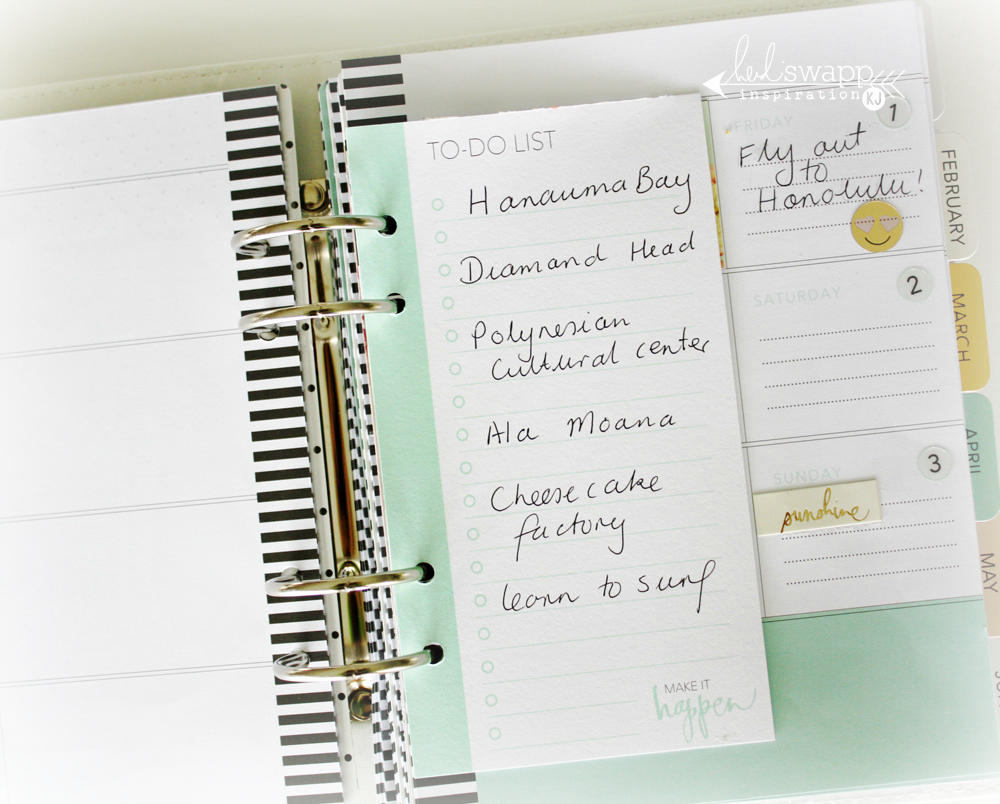 heidi swapp
inspiration KJ
TO-DO LIST
Hanauma Bay
Diamond Head
Polynesian
Cultural center
Ala Moana
Cheesecake
factory
learn to surf
MAKE IT
happen
FRIDAY
1
Fly out
to
Honolulu!
SATURDAY
2
SUNDAY
3
sunshine
FEBRUARY
MARCH
APRIL
MAY